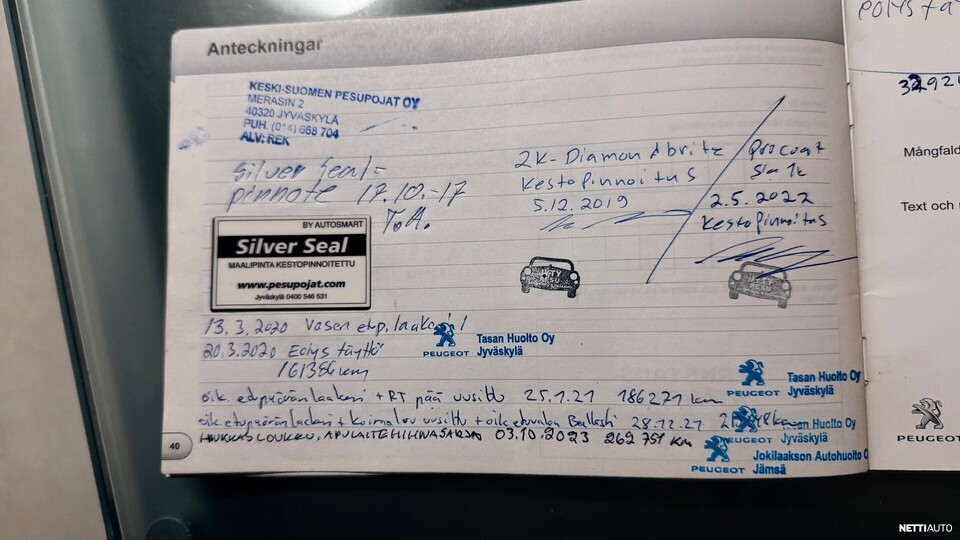 Anteckningar
KESKI-SUOMEN PESUPOJAT OY
MERASIN 2
40320 JYVÄSKYLÄ
PUH. (014) 668 704
ALV: REK
Silver Seal-
pinnote 17.10.-17
T.A.
BY AUTOSMART
Silver Seal
MAALIPINTA KESTOPINNOITETTU
www.pesupojat.com
Jyväskylä 0400 546 531
2K-Diamondbritz
Kestopinnoitus
5.12.2019
Procoat
Sio 1k
2.5.2022
Kestopinnoitus
13.3.2020 Vasen etup. laakeri
Tasan Huolto Oy
Jyväskylä
PEUGEOT
20.3.2020 Eolys täyttö
161386 km
oik. etupyöränlaakeri + RT pää uusittu 25.1.21 186271 km
Tasan Huolto Oy
Jyväskylä
PEUGEOT
oik etupyöränlaakeri + uusittu + oik etuvalon 28.12.21
Tasan Huolto Oy
Jyväskylä
PEUGEOT
HIUKKASLOUKKU, APULAITEHIHNASARJA 03.10.2023 262 751 km
Jokilaakson Autohuolto O
Jämsä
PEUGEOT
40
Mångfald
Text och
PEUGEOT
NETTIAUTO